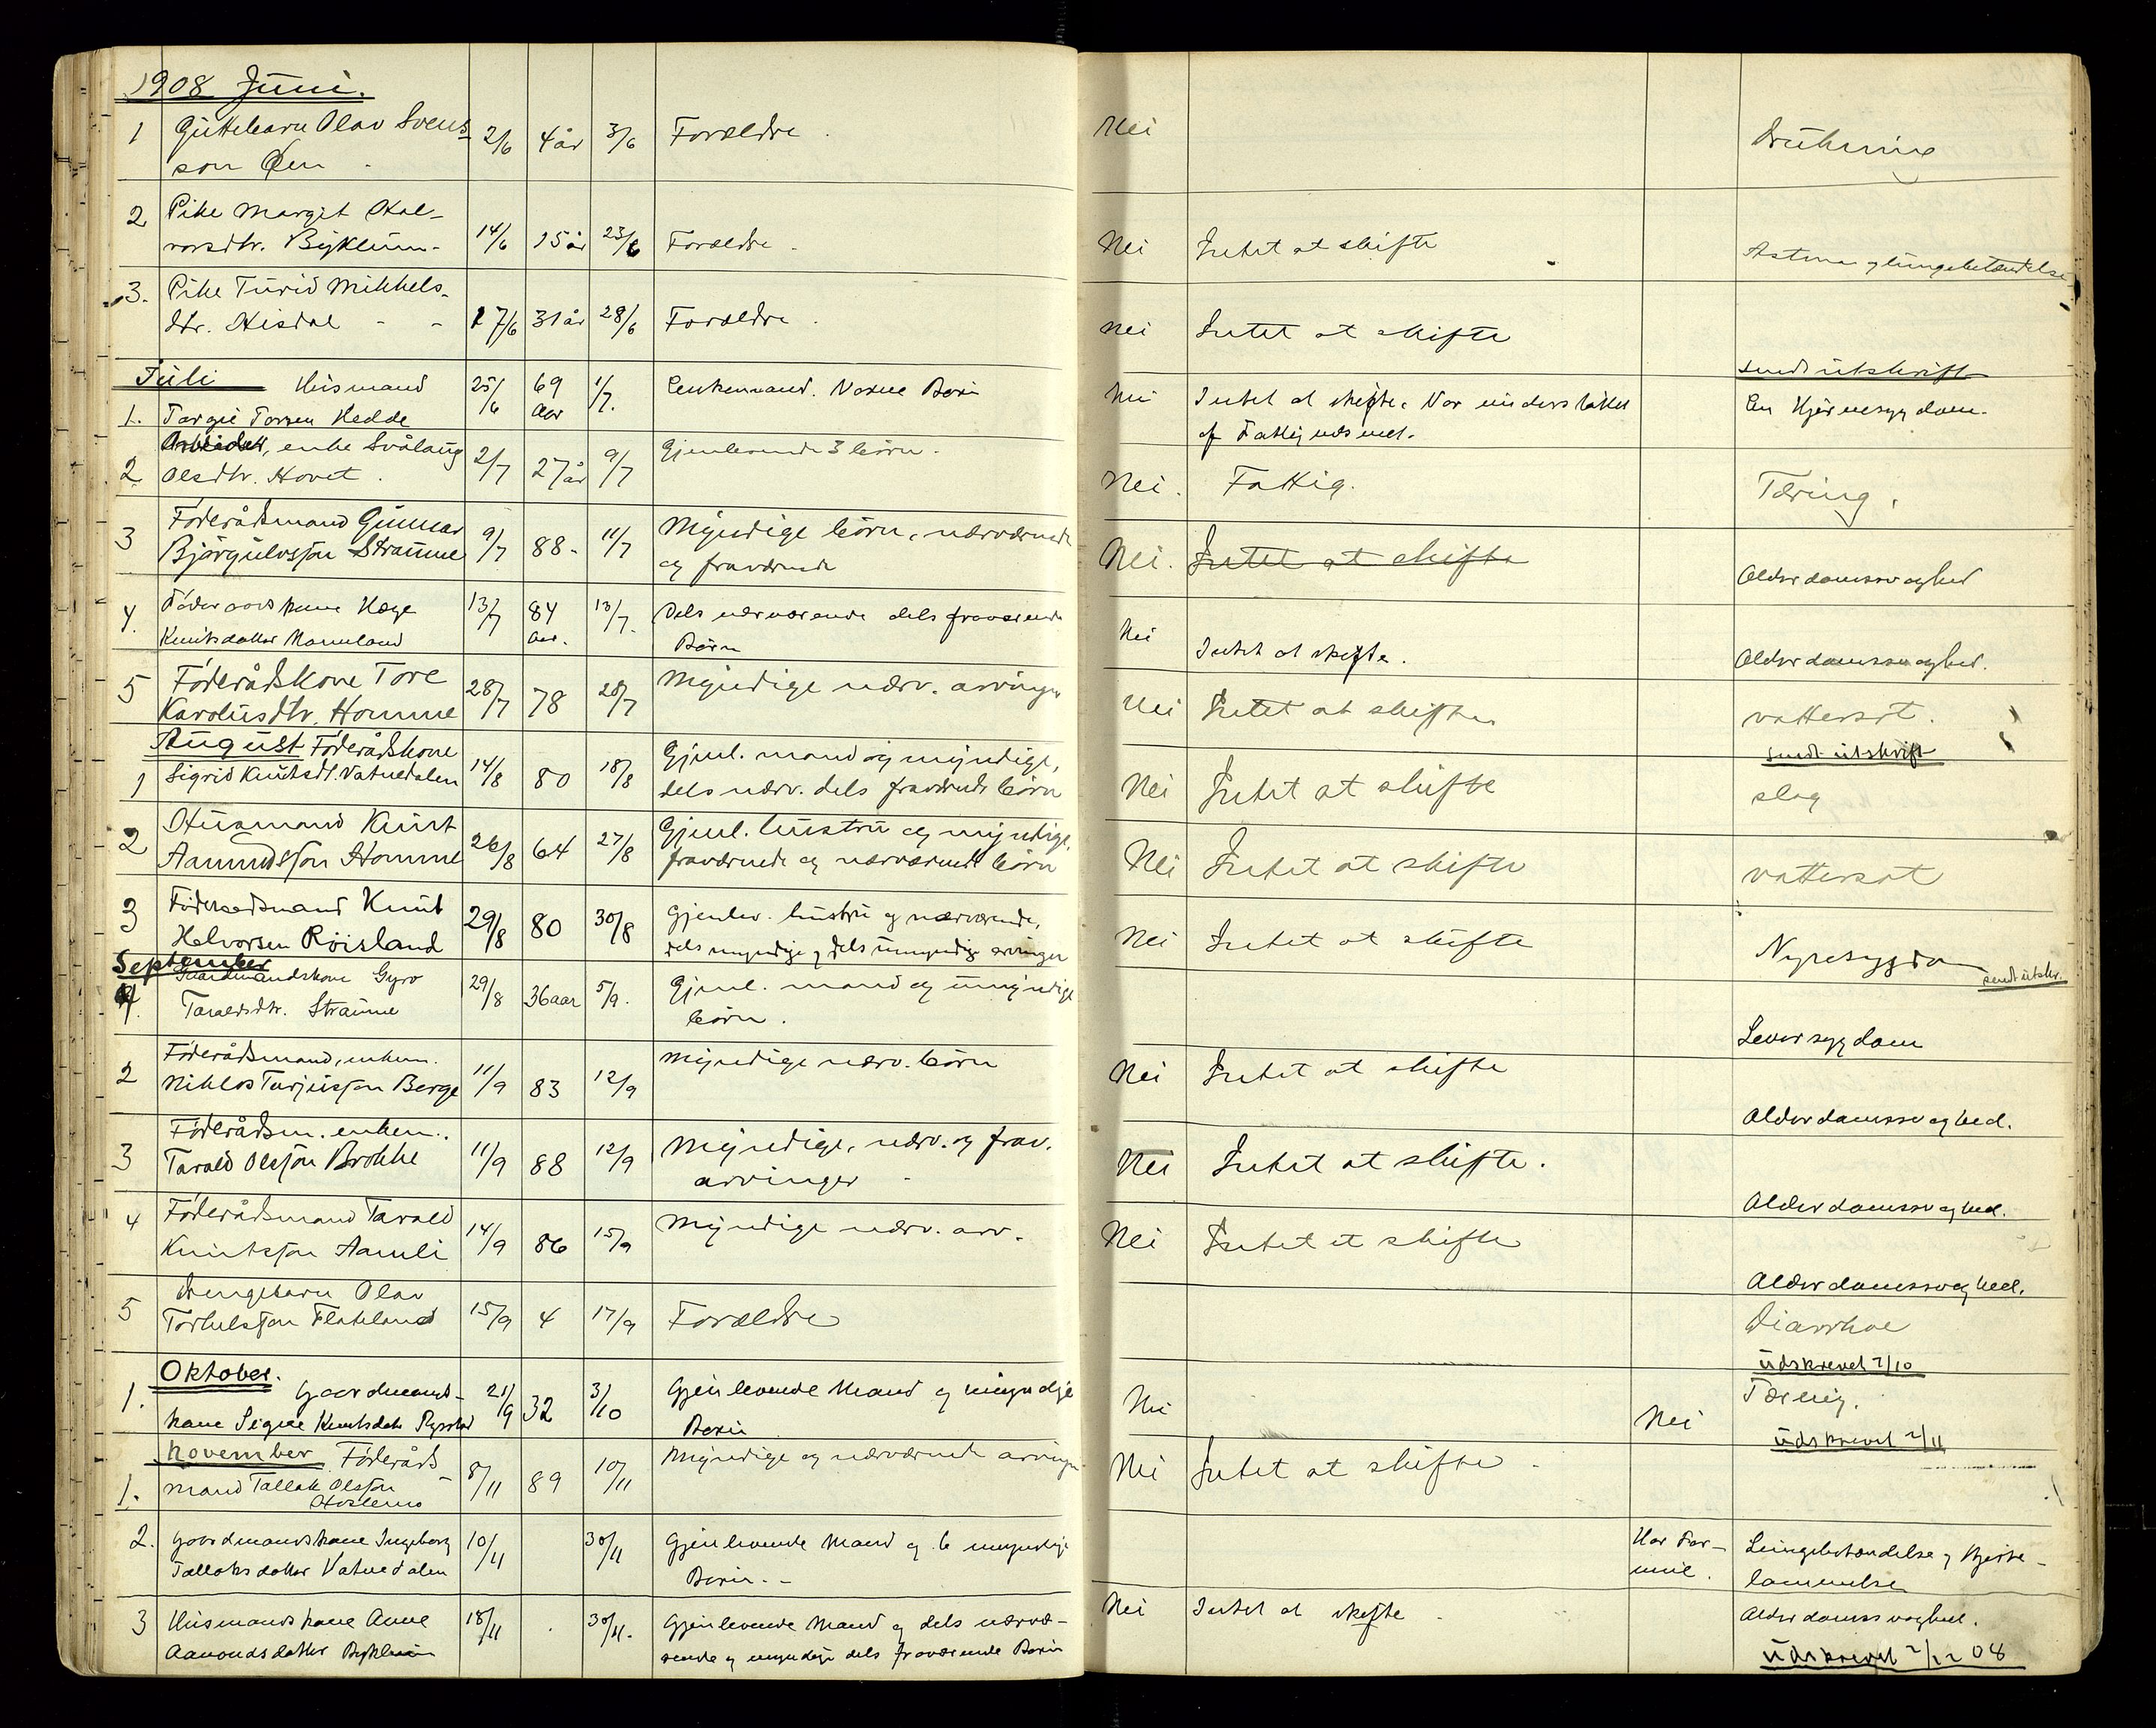 1908 Juni.
1 Guttebarn Olav Svens- 2/6 4 år 3/6 Forældre. Nei Drukning
son Øen.
2 Pike Margit Hal-
vorsdtr. Bykleum. 14/6 15 år 23/6 Forældre. Nei Intet at skifte Astma og lungebetændelse
3. Pike Turid Mikkels-
dtr. Hisdal - - 17/6 31 år 28/6 Forældre. Nei Intet at skifte
sendt utskrift
Juli Husmand 25/6 69 1/7. Enkemand. Voxne Børn Nei Intet at skifte. Var understøttet En Hjernesygdom.
1. Targei Torsen Hedde Aar af Fattigvæsenet.
enke Svålaug 2/7 27 år 9/7 Gjenlevende 3 børn. Nei. Fattig. Tæring.
2. Olsdtr. Hovet.
3 Føderådsmand Gunnar 9/7 88- 11/7 Myndige børn, nærværende Nei. Intet at skifte Alderdomssvaghed
Bjørgulvsson Straume og fraværende
4. Føderaadskone Hæge 13/7 84 13/7. Dels nærværende dels fraværende Nei
Knutsdatter Nomeland Aar. Børn Intet at skifte. Alderdomssvaghed.
5 Føderådskone Tore 28/7 78 28/7 Myndige nærv. arvinger Nei Intet at skifte vattersot.
Karolusdtr. Homme
August Føderådskone Gjenl. mand og myndige, sendt utskrift
1 Sigrid Knutsdt. Vatnedalen 14/8 80 18/8 dels nærv. dels fraværende børn Nei Intet at skifte slag
2 Husmand Knut 26/8 64 27/8 Gjenl. hustru og myndige, Nei Intet at skifte vattersot
Aamundsson Homme fraværende og nærværende børn
3 Føderaadsmand Knut 29/8 80 30/8 Gjenlev. hustru og nærværende, Nei Intet at skifte Nyresygdom
Halvorsen Röisland dels myndige og dels umyndige arvinger
September sendt utskr.
Gaardmandskone Gyro 29/8 36 aar 5/9. Gjenl. mand og umyndige
1. Taraldsdtr. Straume børn. Leversygdom
2 Føderådsmand, enkem. 11/9 83 12/9 Myndige nærv. børn Nei Intet at skifte
Niklos Turjusson Berge Alderdomssvaghed.
3 Føderådsm. enkem. 11/9 88 12/9 Myndige, nærv. og frav. Nei Intet at skifte.
Tarald Olsson Brokke arvinger Alderdomssvaghed.
4 Føderådsmand Tarald 14/9 86 15/9 Myndige nærv. arv. Nei Intet at skifte
Knutsson Aamli Alderdomssvaghed.
5 Drengebarn Olav 15/9 4 17/9 Forældre Diarrhoe
Torkelsson Flateland
Oktober. udskrevet 2/10
1. Gaardmands- 21/9 32 3/10 Gjenlevende Mand og umyndige Nei Nei Tæring.
kone Signe Knutsdatr Rysstad Børn udskrevet 2/11
November Føderåds
1. mand Tallak Olsson 8/11 89 10/11 Myndige og nærværende arvinger Nei Intet at skifte.
2. Gaardmandskone Ingeborg 10/11 30/11 Gjenlevende Mand og 6 umyndige Har For- Lungebetændelse og Hjerte-
Tallaksdatter Vatnedalen Børn.- mue. lammelse
3 Husmandskone Anne 18/11 . 30/11. Gjenlevende Mand og dels nærvæ- Nei Intet at skifte. Alderdomssvaghed.
Aanondsdatter Bykleum rende og myndige dels fraværende Børn
Udskrevet 2/12 08